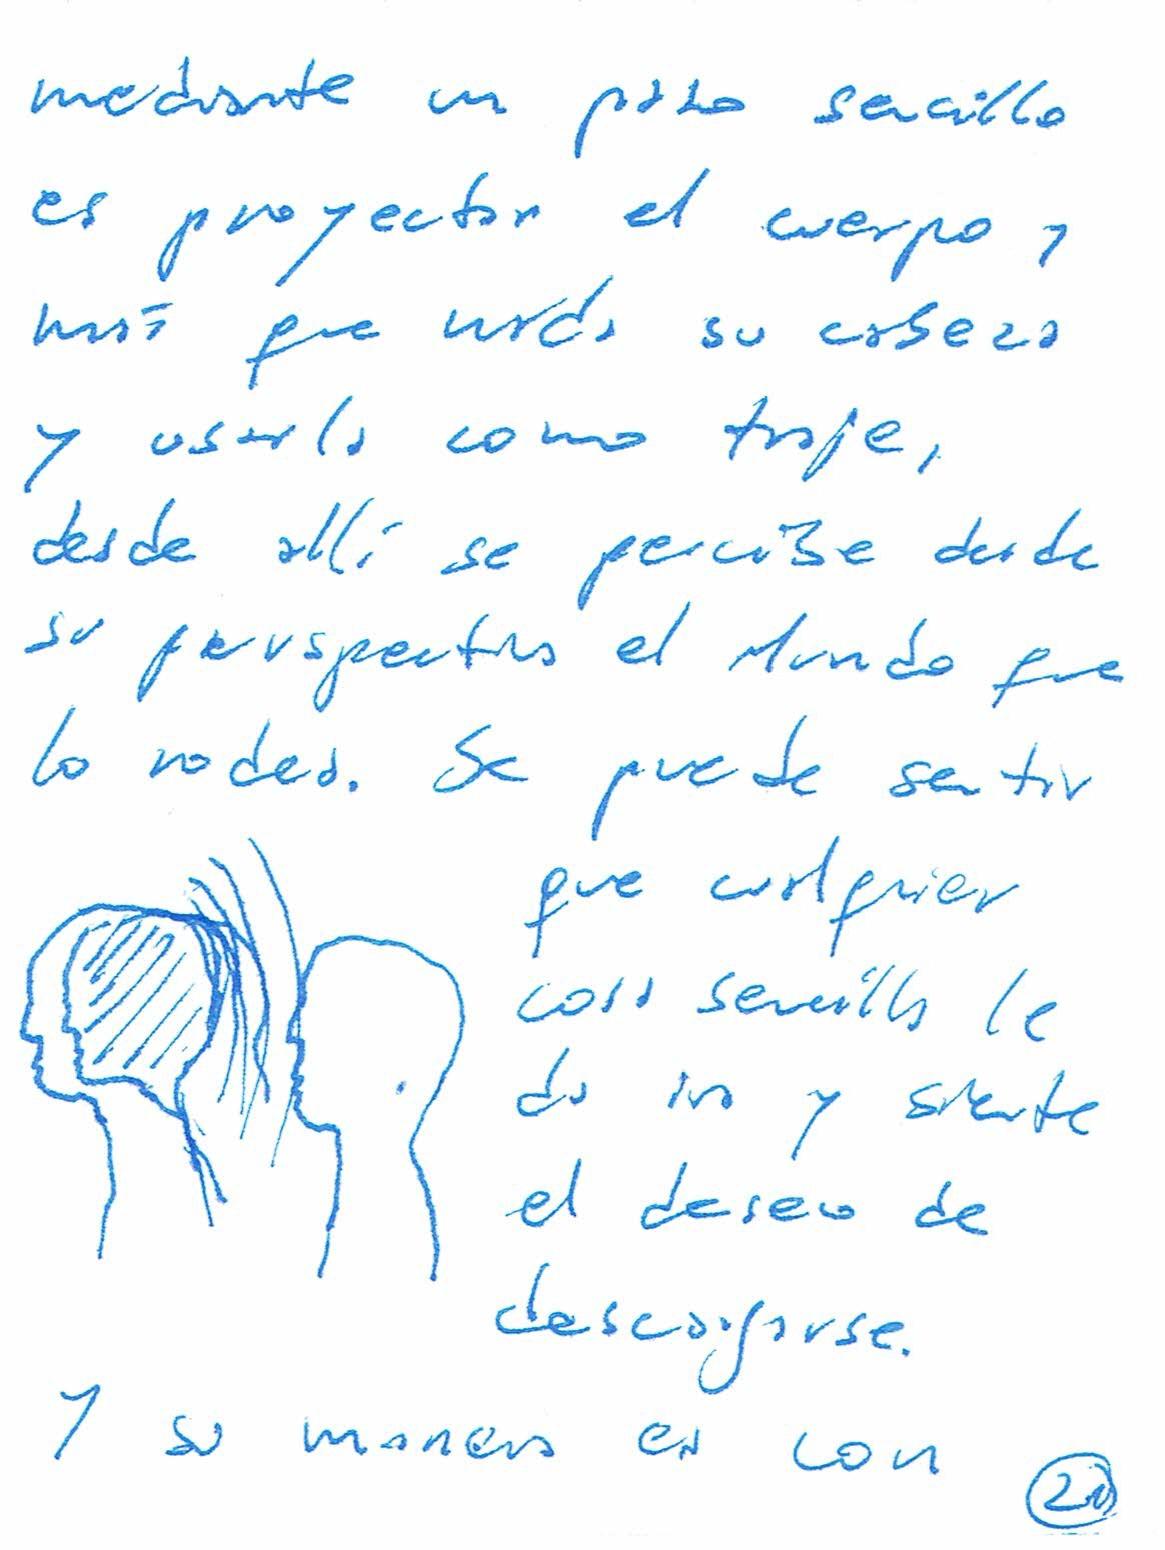 mediante un paso sencillo
es proyectar el cuerpo y
más que nada su cabeza
y usarla como traje,
desde allí se percibe desde
su perspectiva el Mundo que
lo rodea. Se puede sentir
que cualquier
cosa sencilla le
da ira y siente
el deseo de
descargarse.
Y su manera es con